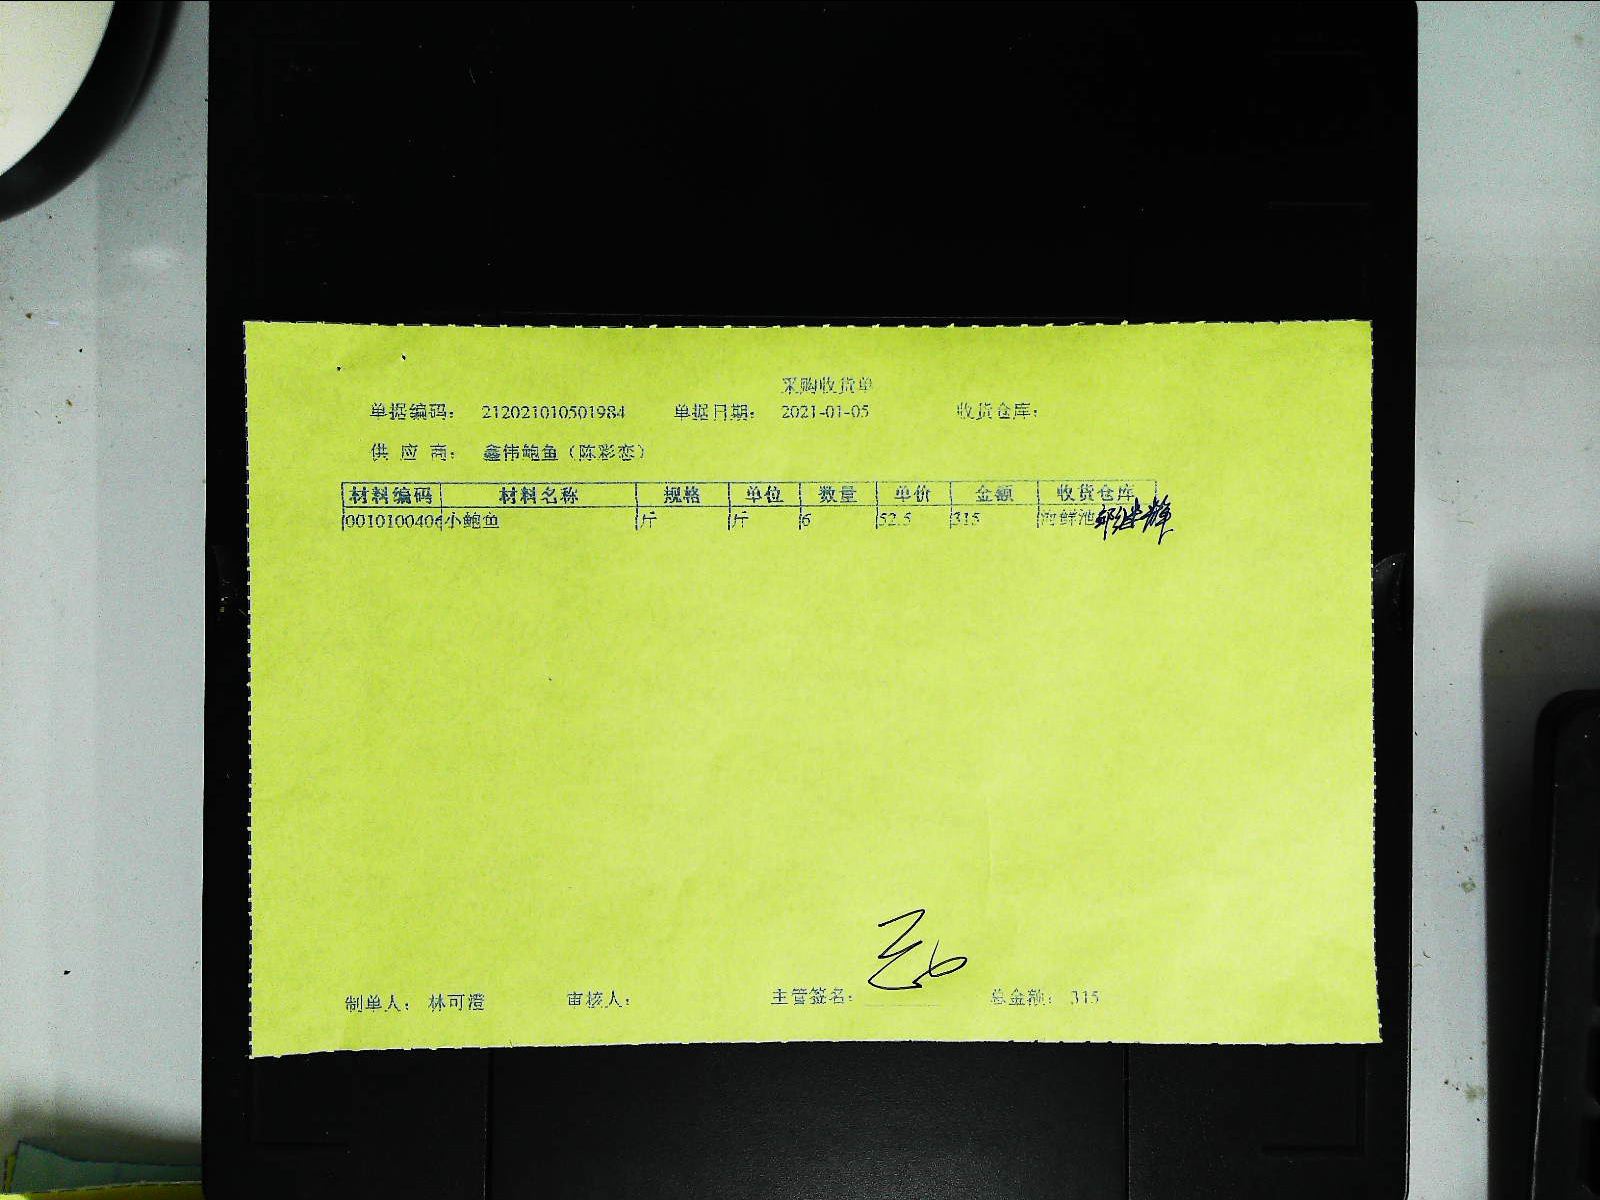 采购收货单
单据编码： 212021010501984 单据日期： 2021-01-05 收货仓库：
供 应 商： 鑫伟鲍鱼（陈彩恋）
材料编码 材料名称 规格 单位 数量 单价 金额 收货仓库
0010100406 小鲍鱼 斤 斤 6 52.5 315 海鲜池
制单人： 林可澄 审核人： 主管签名： 总金额： 315